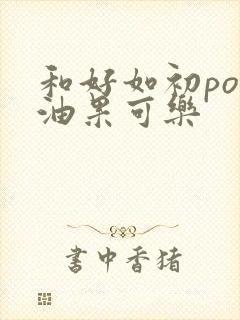 和好如初po
油果可乐
書中香猪